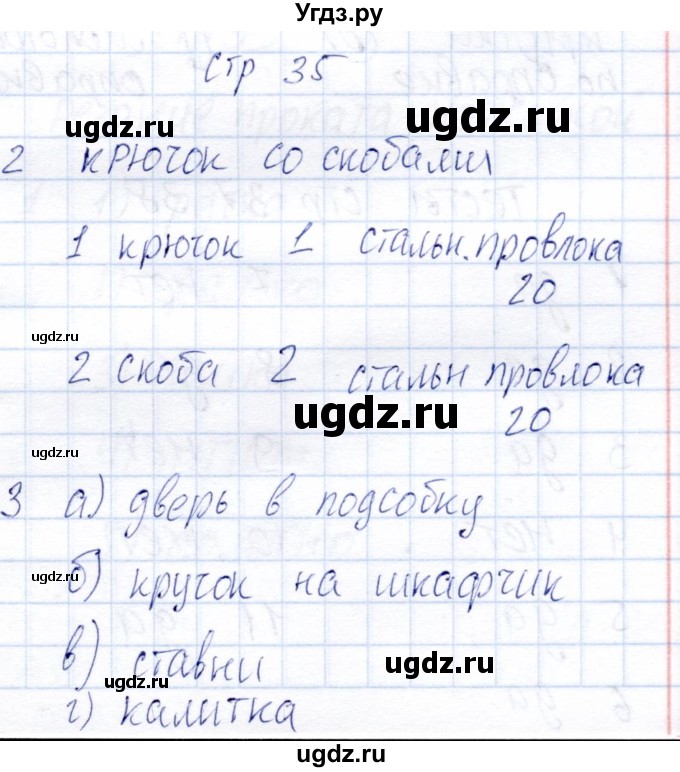 Угдз.ру
стр 35
ugdz.ru
ugdz.ru
2 крючок со скобами
1 крючок 1 стальн. провлока
20
ugdz.ru
2 скоба 2 стальн провлока
20
ugdz.ru
ugdz.ru
3 а) дверь в подсобку
ugdz.ru
б) кручок на шкафчик
в) ставни
ugdz.ru
ugdz.ru
г) калитка
ugdz.ru